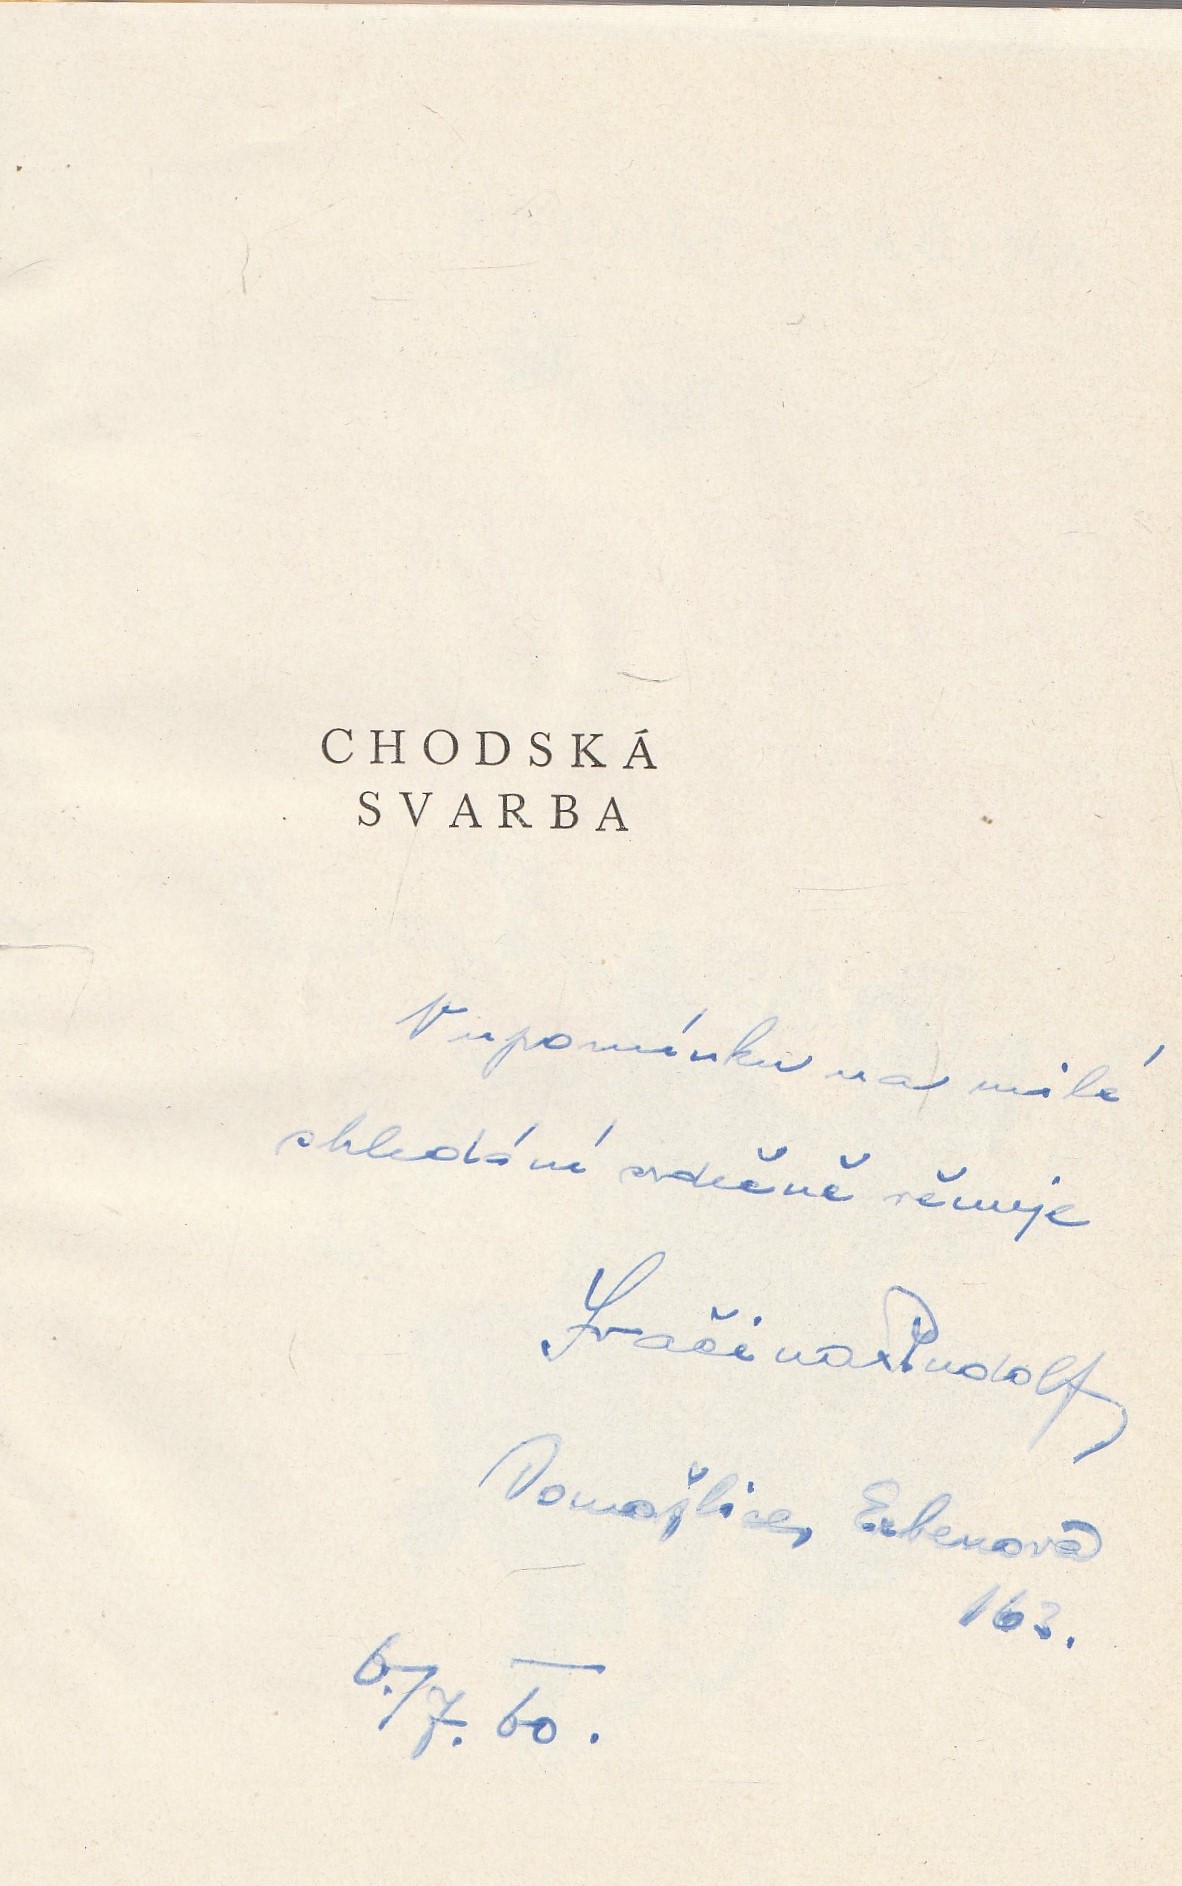 CHODSKÁ
SVARBA
V upomínku na milé
shledání srdečně věnuje
Svačina Rudolf
Domažlice, Erbenova
163.
6./7. 60.